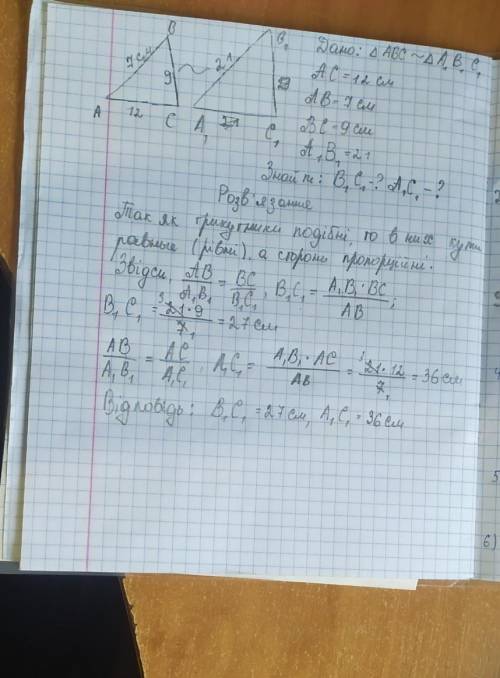 B
B₁
7 см
9
21
A
12
C
A₁
C₁
Дано: △ABC ~ △A₁B₁C₁
AC = 12 см
AB - 7 см
BC - 9 см
A₁B₁ = 21
Знайти: B₁C₁ - ? A₁C₁ - ?
Розв'язання
Так як трикутники подібні, то в них кути
равные (рівні), а сторони пропорційні.
Звідси, AB/A₁B₁ = BC/B₁C₁, B₁C₁ = A₁B₁·BC/AB;
B₁C₁ = 21·9/7 = 27 см
AB/A₁B₁ = AC/A₁C₁, A₁C₁ = A₁B₁·AC/AB = 21·12/7 = 36 см
Відповідь: B₁C₁ = 27 см, A₁C₁ = 36 см
5
6)